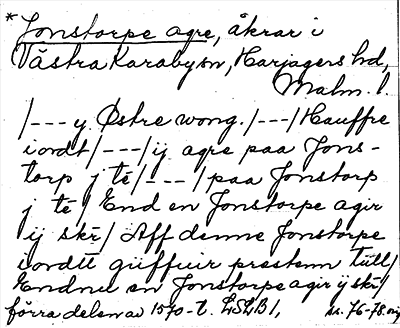 *Jonstorpe agre, åkrar i
Västra Karaby sn, Harjagers hd,
Malm. l.
/--- y Østre wong. /---/ Hauffre
iordt /---/ ij agre paa Jons-
torp j té /---/ paa Jonstorp
j té / End en Jonstorpe agir
ij skr̄ / Aff denne Jonstorpe
iordtt güffuir prestenn tüll /
Endnu en Jonstorpe agir ij skr̄ /
förra delen av 1570-t. LSLB 1,
76-78.